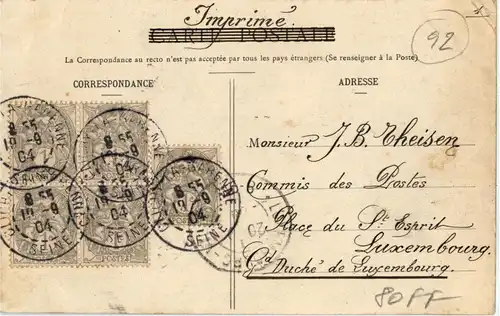 Imprimé.
CARTE POSTALE
92
La Correspondance au recto n'est pas acceptée par tous les pays étrangers (Se renseigner à la Poste)
CORRESPONDANCE
ADRESSE
Monsieur J. B. Theisen
Commis des Postes
Place du St Esprit
Luxembourg.
Gd Duché de Luxembourg.
8 55
19 - 9
04
SEINE
8 55
19 - 9
04
SEINE
8 55
04
SEINE
POSTES
80FF